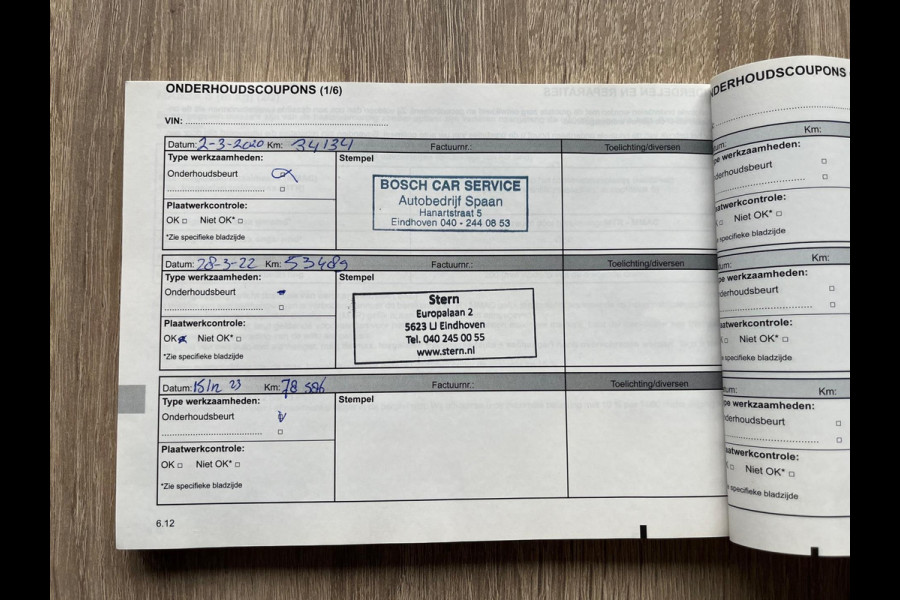 ONDERHOUDSCOUPONS (1/6)
VIN:
Datum: 2-3-2020 Km: 34134 Factuurnr.: Toelichting/diversen
Type werkzaamheden: Stempel
Onderhoudsbeurt
BOSCH CAR SERVICE
Autobedrijf Spaan
Hanartstraat 5
Eindhoven 040 - 244 08 53
Plaatwerkcontrole:
OK □ Niet OK* □
*Zie specifieke bladzijde
Datum: 28-3-22 Km: 53489 Factuurnr.: Toelichting/diversen
Type werkzaamheden: Stempel
Onderhoudsbeurt
Stern
Europalaan 2
5623 LJ Eindhoven
Tel. 040 245 00 55
www.stern.nl
Plaatwerkcontrole:
OK Niet OK* □
*Zie specifieke bladzijde
Datum: 15/12 23 Km: 78 586 Factuurnr.: Toelichting/diversen
Type werkzaamheden: Stempel
Onderhoudsbeurt
Plaatwerkcontrole:
OK □ Niet OK* □
*Zie specifieke bladzijde
6.12
NDERHOUDSCOUPONS
Km:
pe werkzaamheden:
derhoudsbeurt
aatwerkcontrole:
Niet OK* □
specifieke bladzijde
Km:
pe werkzaamheden:
derhoudsbeurt
aatwerkcontrole:
Niet OK* □
specifieke bladzijde
Km:
pe werkzaamheden:
derhoudsbeurt
aatwerkcontrole:
Niet OK* □
specifieke bladzijde